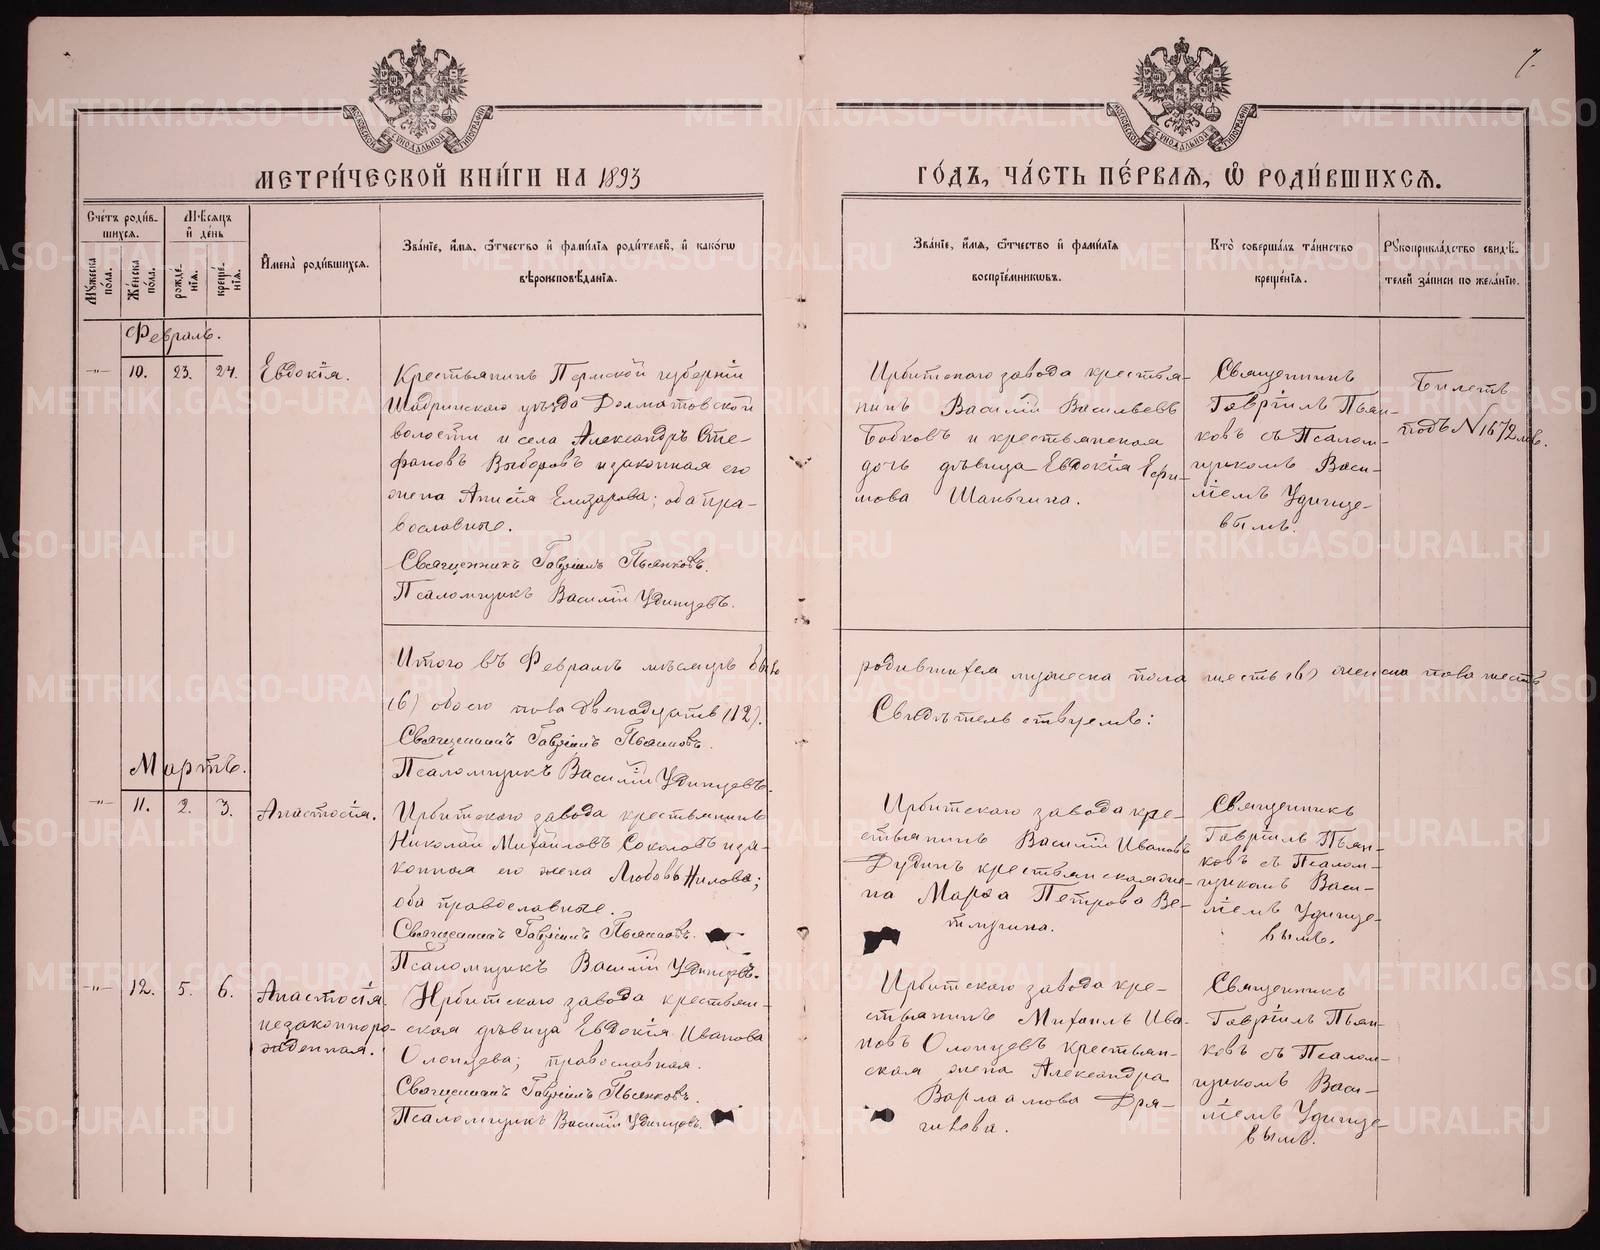 7.
МЕТРИ́ЧЕСКОЙ КНИ́ГИ НА 1893
ГО́ДЪ, ЧА́СТЬ ПЕ́РВАЯ, Ѽ РОДИ́ВШИХСЯ.
Сче́тъ роди́вшихся.
Мѣ́сяцъ и́ де́нь
И҆мена̀ роди́вшихся.
Зва́нїе, и҆́мя, ѻ҆́тчество и҆ фами́лїя роди́телей, и҆ како́гѡ
вѣроисповѣ́данїя.
Зва́нїе, и҆́мя, ѻ҆́тчество и҆ фами́лїя
воспрїе́мниковъ.
Кто̀ соверша́лъ та́инство
креще́нїя.
Рꙋкоприкла́дство свидѣ́-
телей за́писи по жела́нїю.
Мꙋ́жеска по́ла.
Же́нска по́ла.
рожде́нїя.
креще́нїя.
Февраль.
-"- 10. 23. 24. Евдокія.
Крестьянинъ Пермской губерніи
Шадринскаго уѣзда Долматовской
волости и села Александръ Сте-
фановъ Выборовъ и законная его
жена Анисія Елизарова; оба пра-
вославные.
Священникъ Гавріилъ Пьянковъ.
Псаломщикъ Василій Удинцевъ.
Ирбитскаго завода крестья-
нинъ Василій Васильевъ
Бобковъ и крестьянская
дочь дѣвица Евдокія Ефи-
мова Шаньгина.
Священникъ
Гавріилъ Пьян-
ковъ съ Псалом-
щикомъ Васи-
ліемъ Удинце-
вымъ.
Билетъ
подъ № 1672
Итого въ Февралѣ мѣсяцѣ было
родившихся мужеска пола шесть (6) женска пола шесть
(6) обоего пола двенадцать (12).
Свидѣтельствуемъ:
Священникъ Гавріилъ Пьянковъ.
Псаломщикъ Василій Удинцевъ.
Мартъ.
-"- 11. 2. 3. Анастасія.
Ирбитскаго завода крестьянинъ
Николай Михайловъ Соколовъ и за-
конная его жена Любовь Нилова;
оба православные.
Священникъ Гавріилъ Пьянковъ.
Псаломщикъ Василій Удинцевъ.
Ирбитскаго завода кре-
стьянинъ Василій Ивановъ
Дудинъ крестьянская же-
на Марѳа Петрова Ве-
тлугина.
Священникъ
Гавріилъ Пьян-
ковъ съ Псалом-
щикомъ Васи-
ліемъ Удинце-
вымъ.
-"- 12. 5. 6. Анастасія
незаконноро-
жденная.
Ирбитскаго завода крестьян-
ская дѣвица Евдокія Иванова
Олонцева; православная.
Священникъ Гавріилъ Пьянковъ.
Псаломщикъ Василій Удинцевъ.
Ирбитскаго завода кре-
стьянинъ Михаилъ Ива-
новъ Олонцевъ крестьян-
ская жена Александра
Варлаамова Дря-
гилева.
Священникъ
Гавріилъ Пьян-
ковъ съ Псалом-
щикомъ Васи-
ліемъ Удинце-
вымъ.
METRIKI.GASO-URAL.RU